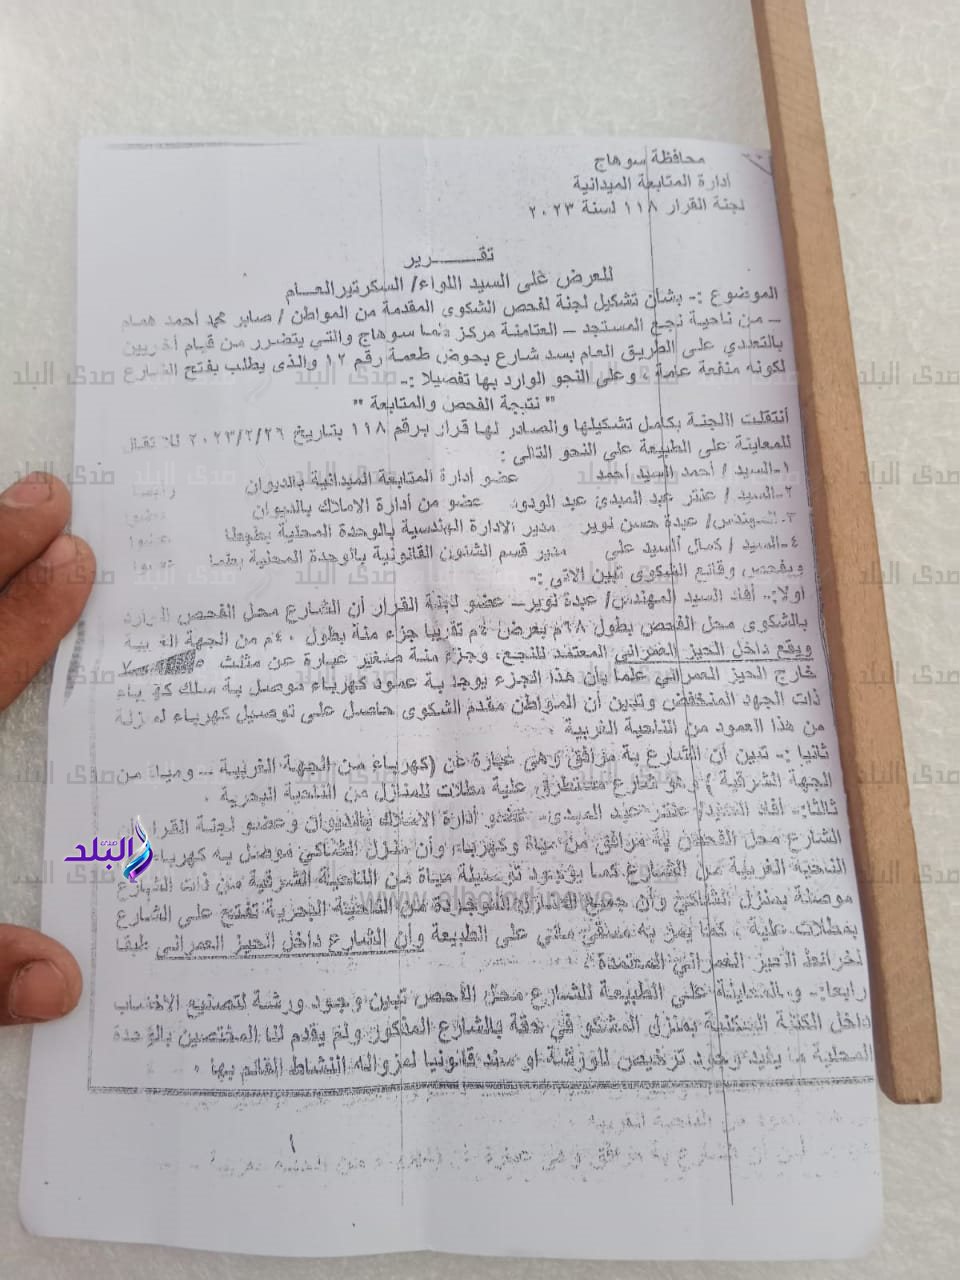 محافظة سوهاج
أدارة المتابعة الميدانية
لجنة القرار ١١٨ لسنة ٢٠٢٣
تقـــــرير
للعرض على السيد اللواء/ السكرتير العـام
الموضوع :- بشأن تشكيل لجنة لفحص الشكوى المقدمة من المواطن / صابر محمد أحمد همام
– من ناحية نجع المستجد – العتامنة مركز طما سوهاج والتي يتضرر من قيام أخريين
بالتعدي على الطريق العام بسد شارع بحوض طعمة رقم ١٢ والذى يطلب بفتح الشارع
لكونه منفعة عامة ، وعلى النحو الوارد بها تفصيلا :-
" نتيجة الفحص والمتابعة "
أنتقلت اللجنة بكامل تشكيلها والصادر لها قرار برقم ١١٨ بتاريخ ٢٠٢٣/٢/٢٦
للمعاينة على الطبيعة على النحو التالى :
١-السيد / أحمد السيد أحمد عضو ادارة المتابعة الميدانية بالديوان
٢-السيد / عنتر عبد المبدى عبد الودود عضو من أدارة الاملاك بالديوان عضوا
٣-المهندس/ عبدة حسن نوير مدير الادارة الهندسية بالوحدة المحلية بطما عضوا
٤-السيد / كمال السيد على مدير قسم الشئون القانونية بالوحدة المحلية بطما عضوا
وبفحص وقائع الشكوى تبين الاتى :-
اولا:- أفاد السيد المهندس/ عبدة نوير – عضو لجنة القرار أن الشارع محل الفحص الوارد
بالشكوى محل الفحص بطول ٦٨م بعرض ٤م تقريبا جزء منة بطول ٤٠م من الجهة الغربية
ويقع داخل الحيز العمراني المعتمد للنجع، وجزء منة صغير عبارة عن مثلث
خارج الحيز العمراني علما بأن هذا الجزء يوجد بة عمود كهرباء موصل بة سلك كهرباء
ذات الجهد المنخفض وتبين أن المواطن مقدم الشكوى حاصل على توصيل كهرباء لمنزلة
من هذا العمود من الناحية الغربية .
ثانيا :- تبين أن الشارع بة مرافق وهى عبارة عن (كهرباء من الجهة الغربية – ومياة من
الجهة الشرقية ) وهو شارع مستطرق علية مطلات للمنازل من الناحية البحرية .
ثالثا:- أفاد السيد/ عنتر عبد المبدى- عضو أدارة الاملاك بالديوان وعضو لجنة القرار
الشارع محل الفحص بة مرافق من مياة وكهرباء وأن منزل الشاكى موصل به كهرباء
الناحية الغربية من الشارع كما يوجد توصيلة مياة من الناحية الشرقية من ذات الشارع
موصلة بمنزل الشاكى وأن جميع المنازل الموجودة من الناحية البحرية تفتح على الشارع
بمطلات علية ، كما يمر به مسقى مائى على الطبيعة وأن الشارع داخل الحيز العمرانى طبقا
لخرائط الحيز العمراني المعتمدة .
رابعا:- و المعاينة على الطبيعة للشارع محل الفحص تبين وجود ورشة لتصنيع الاخشاب
داخل الكتلة السكنية بمنزل المشكو في حقة بالشارع المذكور ولم يقدم لنا المختصين بالوحدة
المحلية ما يفيد وجود ترخيص للورشة او سند قانونيا لمزواله النشاط القائم بها .
صدى البلد
www.elbalad.news